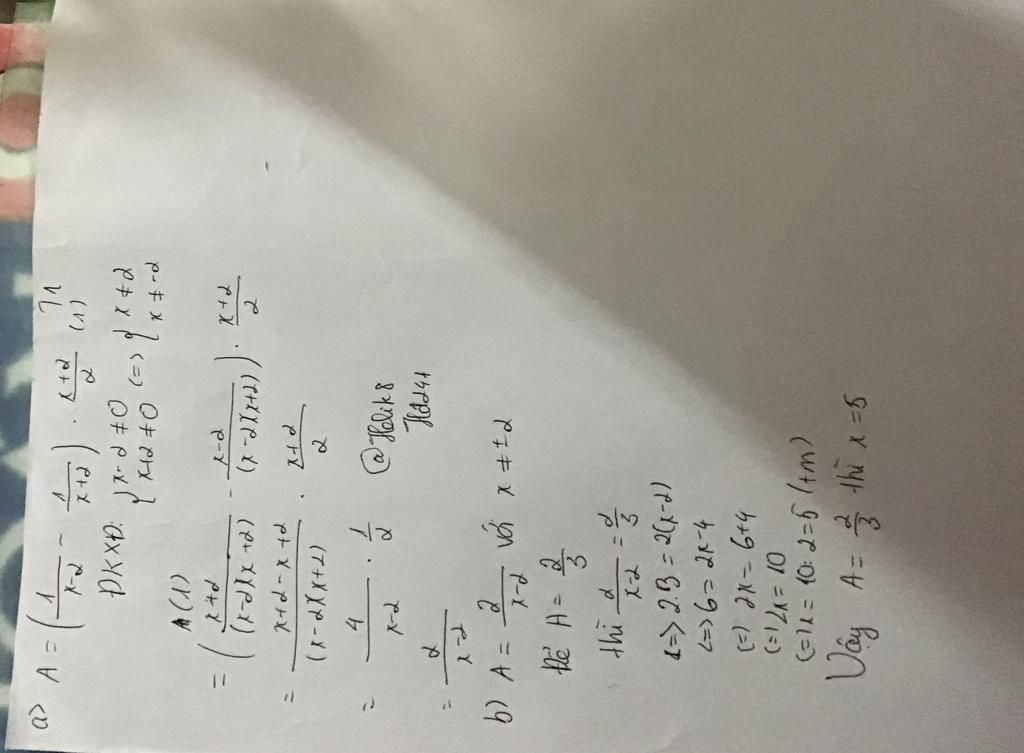 a) A = (1/(x-2) - 1/(x+2)) . (x+2)/2 (1)
ĐKXĐ: { x-2 ≠ 0 (=) { x ≠ 2
{ x+2 ≠ 0 { x ≠ -2
A(1)
= ((x+2)/((x-2)(x+2)) - (x-2)/((x-2)(x+2))) . (x+2)/2
= (x+2-x+2)/((x-2)(x+2)) . (x+2)/2
= 4/(x-2) . 1/2 @Helik8
= 2/(x-2) Hđ24+
b) A = 2/(x-2) với x ≠ ±2
Để A = 2/3
thì 2/(x-2) = 2/3
<=> 2.3 = 2(x-2)
<=> 6 = 2x-4
(=) 2x = 6+4
(=) 2x = 10
(=) x = 10:2 = 5 (tm)
Vậy A = 2/3 thì x = 5